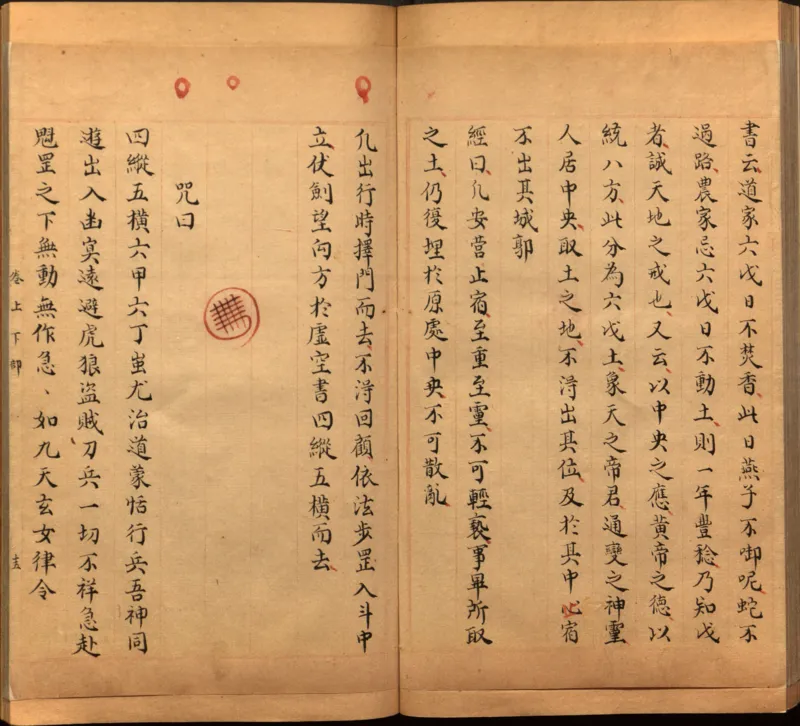 書云道家六戊日不焚香此日燕子不啣呢蛇不
過路農家忌六戊日不動土則一年豐稔乃知戊
者誠天地之戒也又云以中央之應黃帝之德以
統八方此分為六戊土象天之帝君通變之神靈
人居中央取土之地不淂出其位及於其中心宿
不出其城郭
經曰凢安營止宿至重至靈不可輕褻事畢所取
之土仍復埋於原處中央不可散亂
凢出行時擇門而去不淂回顧依法步罡入斗中
立伏劍望向方於虛空書四縱五橫而去
咒曰
四縱五橫六甲六丁蚩尤治道蒙恬行兵吾神同
遊出入幽冥遠避虎狼盜賊刀兵一切不祥急赴
魁罡之下無動無作急、如九天玄女律令
卷上下部
十五